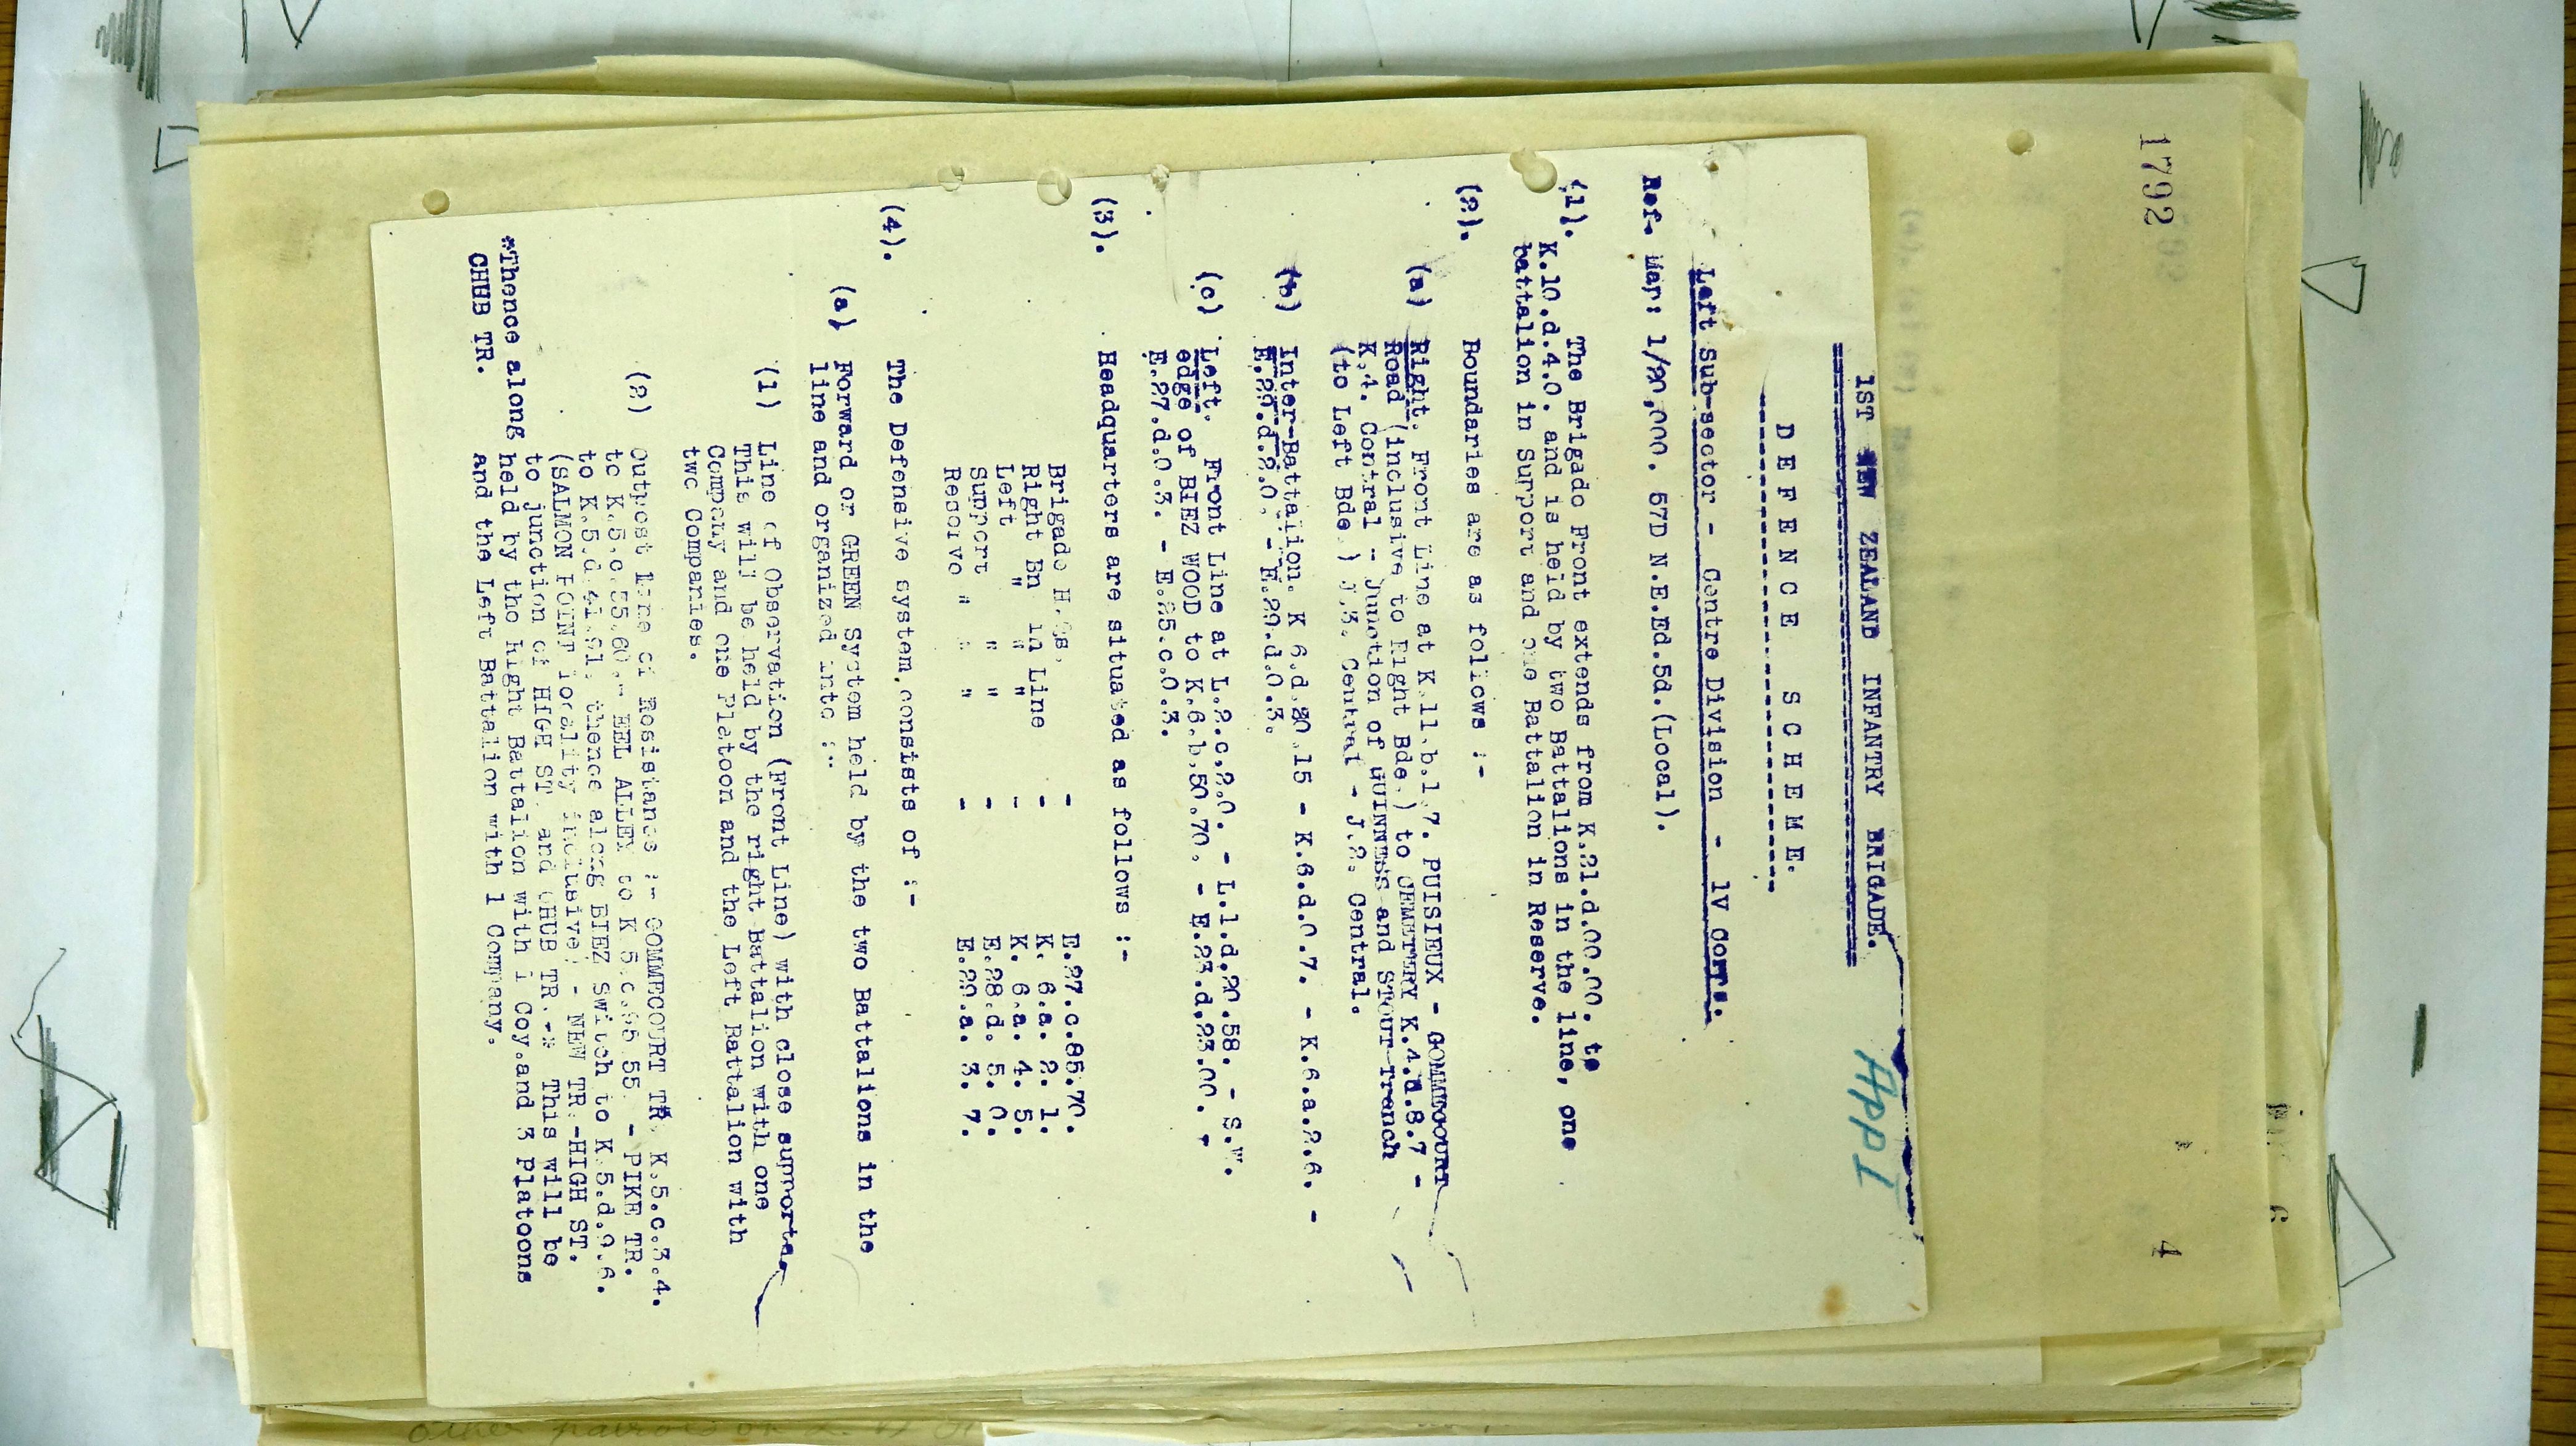 1792
4
App I
1ST NEW ZEALAND INFANTRY BRIGADE.
DEFENCE SCHEME.
Left Sub-sector - Centre Division - IV Corps.
Ref. Map: 1/20,000. 57D N.E.Ed.5d.(Local).
(1). The Brigade Front extends from K.21.d.00.00. to
K.10.d.4.0. and is held by two Battalions in the line, one
battalion in Support and one Battalion in Reserve.
(2). Boundaries are as follows :-
(a) Right. Front Line at K.11.b.1.7. PUISIEUX - GOMMECOURT
Road (inclusive to Right Bde.) to CEMETERY K.4.d.8.7 -
K.4. Central - Junction of GUINNESS and STOUT Trench
(to Left Bde.) J.3. Central - J.2. Central.
(b) Inter-Battalion. K.6.d.20.15 - K.6.d.0.7. - K.6.a.2.6. -
E.29.d.2.0. - E.29.d.0.3.
(c) Left. Front Line at L.2.c.2.0. - L.1.d.20.58. - S.W.
edge of BIEZ WOOD to K.6.b.50.70. - E.23.d.23.00. -
E.27.d.0.3. - E.25.c.0.3.
(3). Headquarters are situated as follows :-
Brigade H.Qs. - E.27.c.85.70.
Right Bn in Line - K. 6.a. 2. 1.
Left " " " - K. 6.a. 4. 5.
Support " " - E.28.d. 5. 0.
Reserve " " " - E.29.a. 3. 7.
(4). The Defensive system consists of :-
(a) Forward or GREEN System held by the two Battalions in the
line and organized into :-
(1) Line of Observation (Front Line) with close supports.
This will be held by the right Battalion with one
Company and one Platoon and the Left Battalion with
two Companies.
(2) Outpost Line of Resistance :- GOMMECOURT TR. K.5.c.3.4.
to K.5.c.55.60.- EEL ALLEY to K.5.c.95.55. - PIKE TR.
to K.5.d.41.91. thence along BIEZ switch to K.5.d.9.6.
(SALMON POINT locality inclusive) - NEW TR.-HIGH ST.
to junction of HIGH ST. and CHUB TR.-* This will be
*Thence along held by the Right Battalion with 1 Coy.and 3 Platoons
CHUB TR. and the Left Battalion with 1 Company.